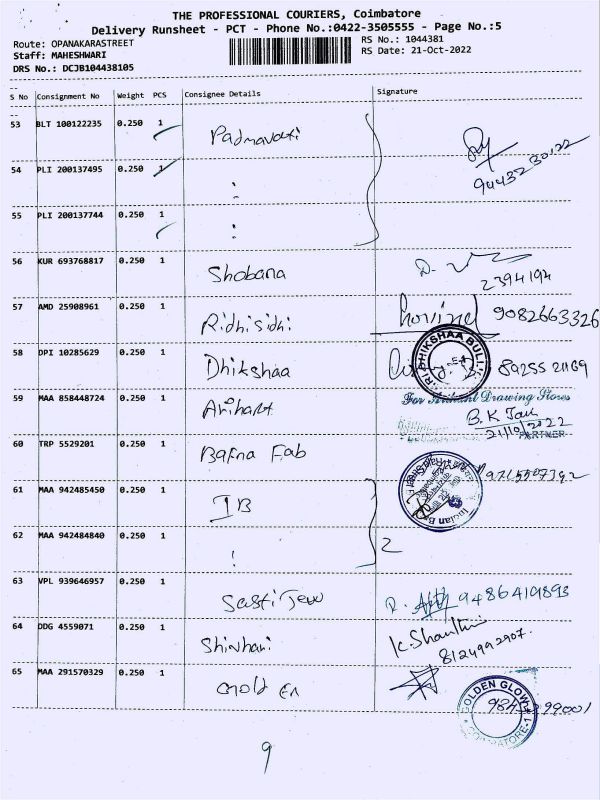 THE PROFESSIONAL COURIERS, Coimbatore
Delivery Runsheet - PCT - Phone No.:0422-3505555 - Page No.:5
Route: OPANAKARASTREET RS No.: 1044381
Staff: MAHESHWARI RS Date: 21-Oct-2022
DRS No.: DCJB104438105
S No Consignment No Weight PCS Consignee Details Signature
53 BLT 100122235 0.250 1 Padmavati
54 PLI 200137495 0.250 1 "
55 PLI 200137744 0.250 1 "
56 KUR 693768817 0.250 1 Shobana D. 2394194
57 AMD 25908961 0.250 1 Ridhisidhi Govind 9082663326
58 DPI 10285629 0.250 1 Dhikshaa RIDHIKSHAA BULL 89255 21169
59 MAA 858448724 0.250 1 Arihant For Arihant Drawing Stores
B.K Jain
21/10/2022
PARTNER
60 TRP 5529201 0.250 1 Bafna Fab
61 MAA 942485450 0.250 1 IB
62 MAA 942484840 0.250 1 " 2
63 VPL 939646957 0.250 1 Sasti Jew 9486419893
64 DDG 4559071 0.250 1 Shivhari K. Shanthi
8124992907.
65 MAA 291570329 0.250 1 Gold En GOLDEN GLOW
COIMBATORE-1
9